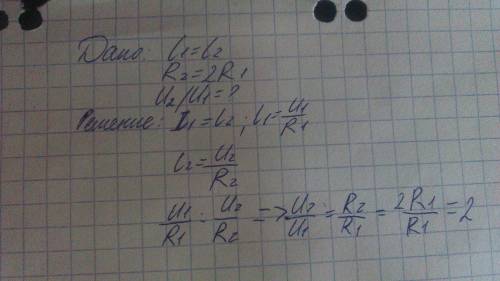 Дано: I1=I2
R2=2R1
U2/U1=?
Решение: I1=I2; I1=U1/R1
I2=U2/R2
U1/R1=U2/R2 => U2/U1=R2/R1=2R1/R1=2